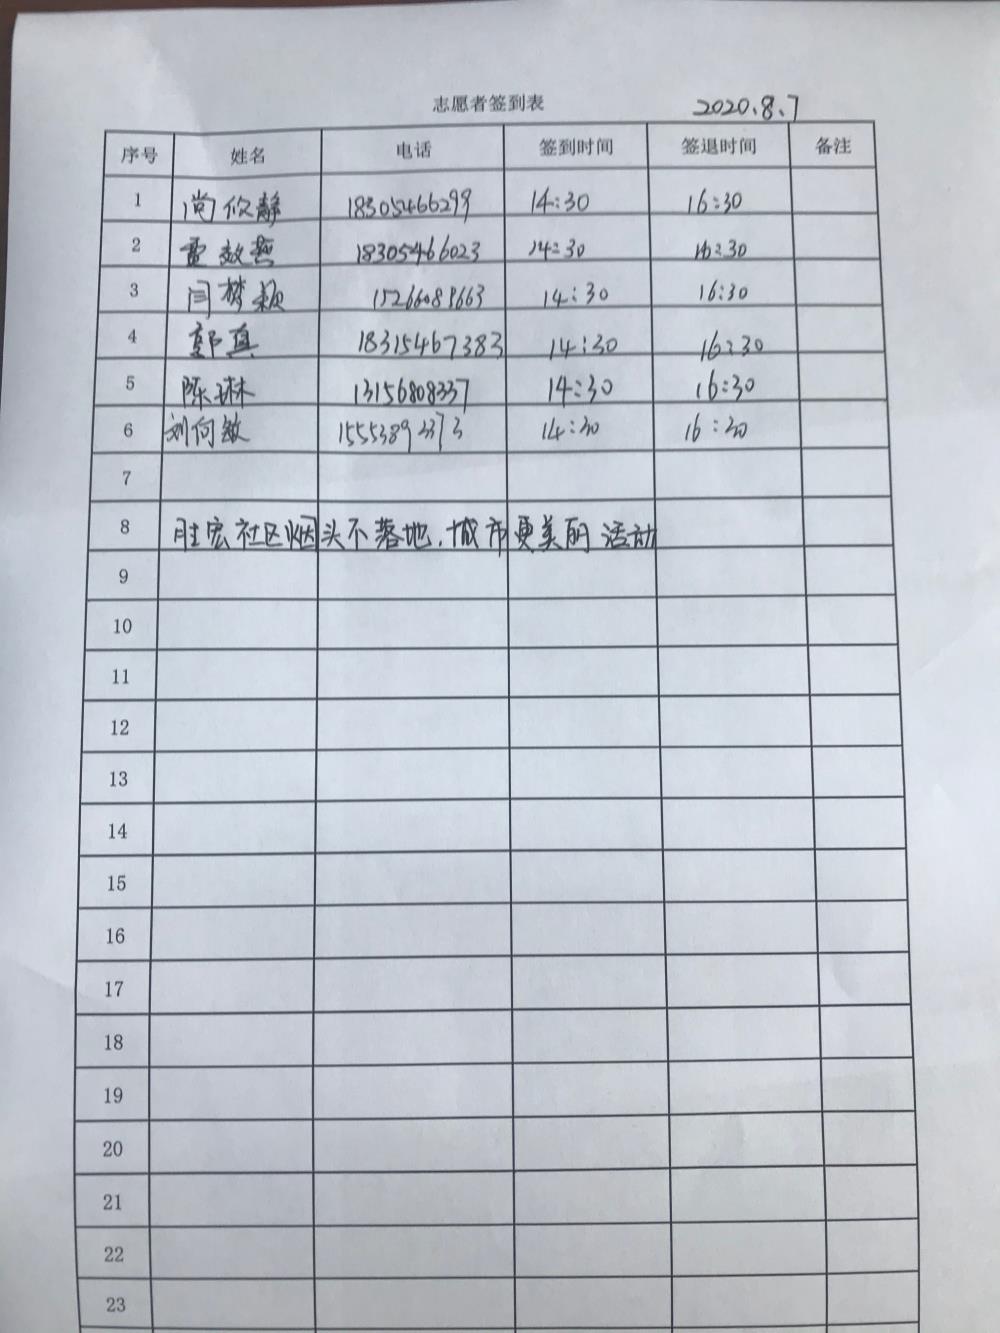 志愿者签到表 2020.8.7
序号 姓名 电话 签到时间 签退时间 备注
1 尚攸静 18305466299 14:30 16:30
2 18305466023 14:30 16:30
3 闫梦颖 15266089663 14:30 16:30
4 郭真 18315467383 14:30 16:30
5 陈琳 13156808337 14:30 16:30
6 刘何敏 14:30 16:30
7
8 胜宏社区烟头不落地,城市更美丽活动
9
10
11
12
13
14
15
16
17
18
19
20
21
22
23